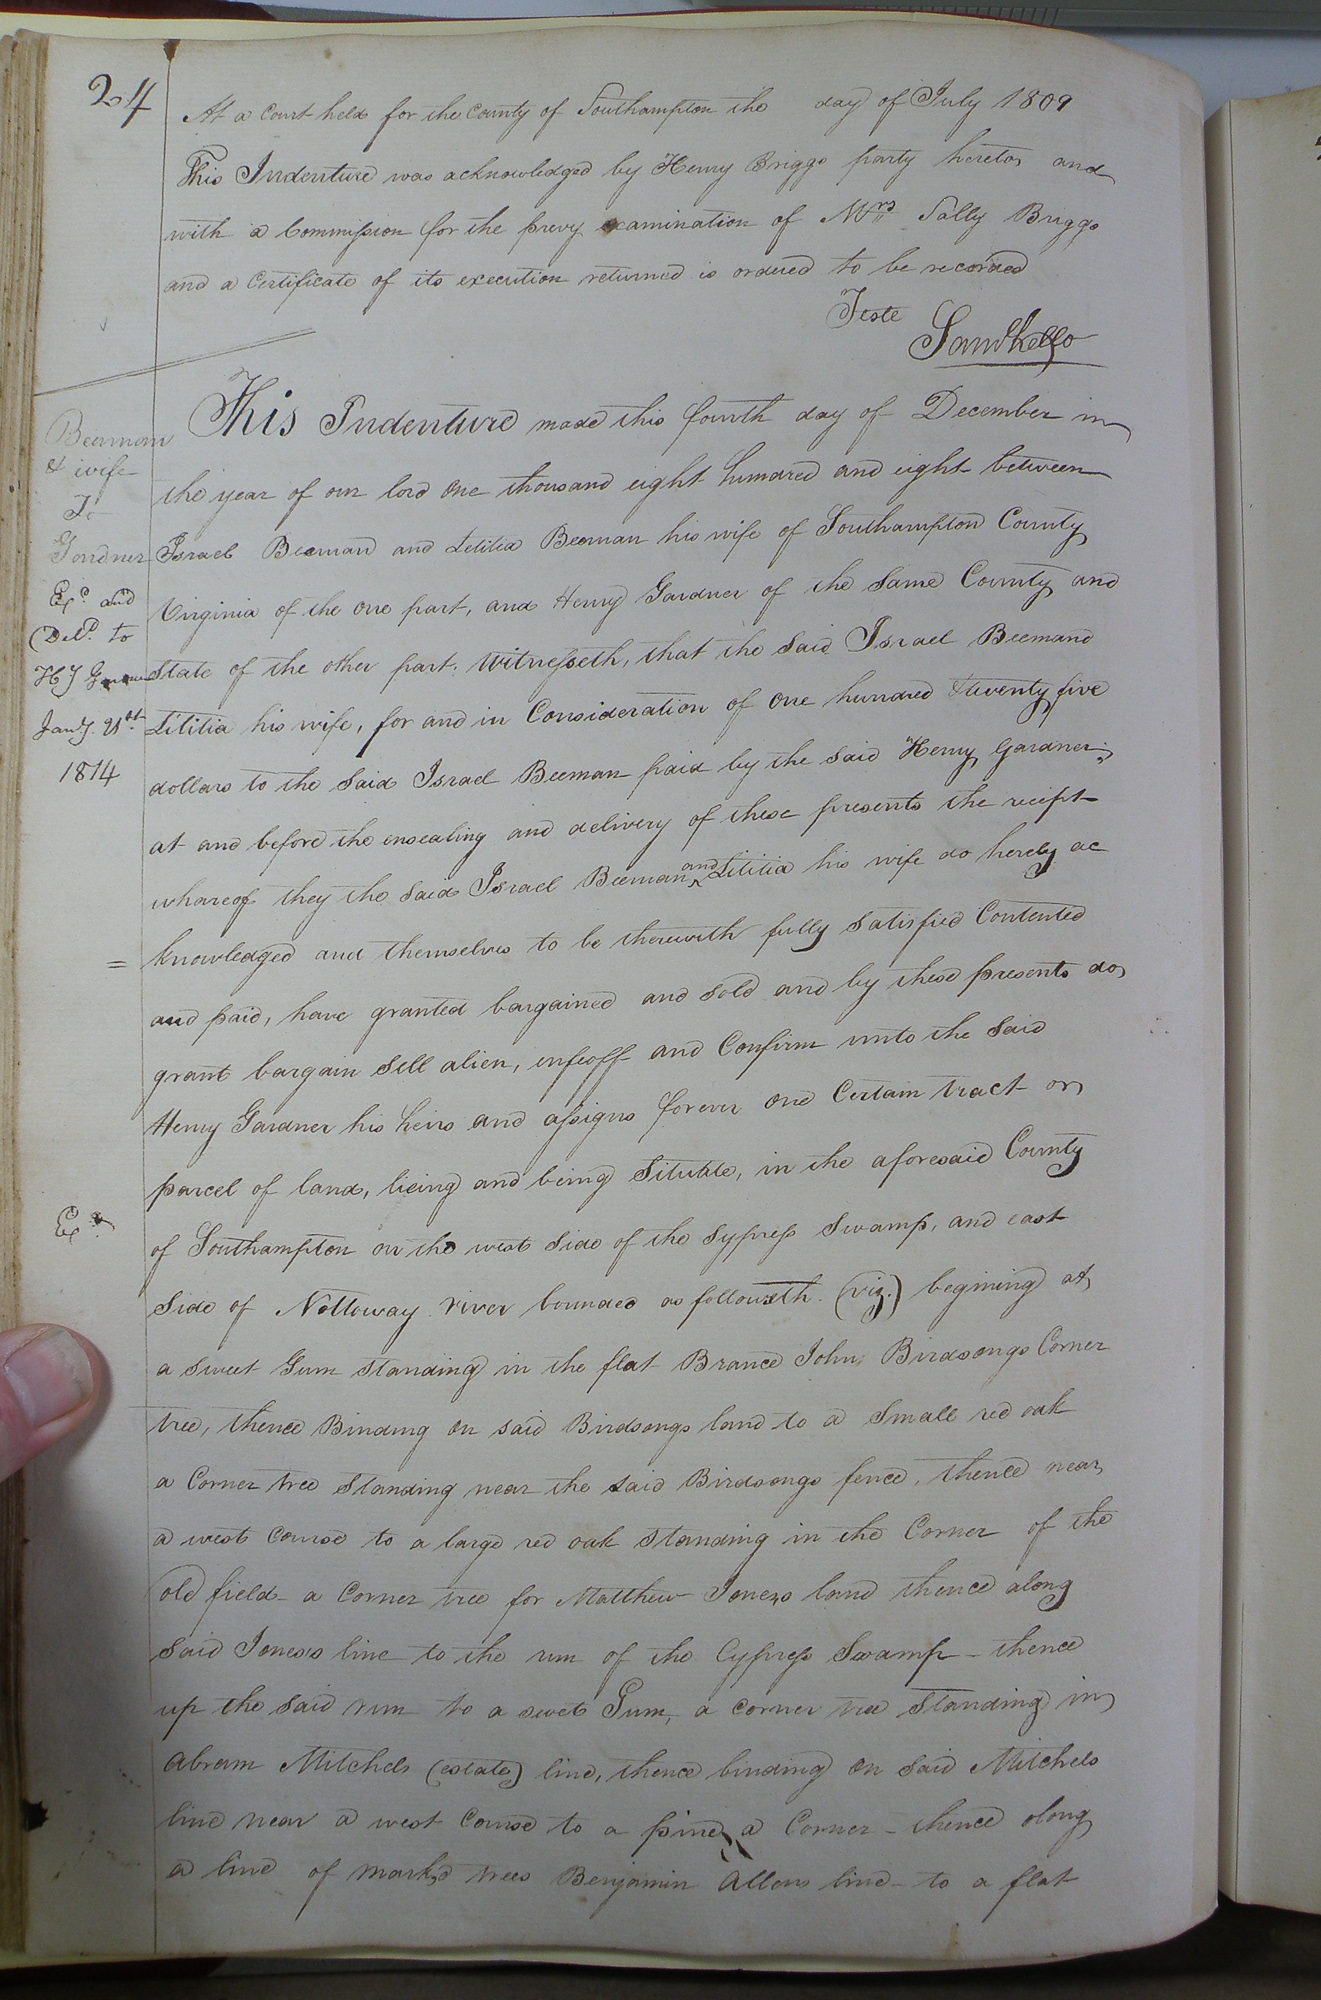 24
At a Court held for the County of Southampton the day of July 1809
This Indenture was acknowledged by Henry Briggs party hereto, and
with a Commission for the prevy examination of Mrs Sally Briggs
and a Certificate of its execution returned is ordered to be recorded
Teste
Beeman
& wife
To
Gardner
Exd. and
Deld. to
HJ
Jany. 21st
1814
This Indenture made this fourth day of December in
the year of our lord One thousand eight hundred and eight between
Israel Beeman and Letitia Beeman his wife of Southampton County
Virginia of the one part, and Henry Gardner of the Same County and
State of the other part. Witnesseth, that the Said Israel Beemand
Lititia his wife, for and in Consideration of One hundred & twenty five
dollars to the Said Israel Beeman paid by the said Henry Gardner,
at and before the ensealing and delivery of these presents the recipt
whareof they the said Israel Beeman and Lititia his wife do hereby ac
= knowledged and themselves to be therewith fully Satisfied Contented
and paid, have granted bargained and sold and by these presents do,
grant bargain Sell alien, infeoff and Confirm unto the Said
Henry Gardner his heirs and assigns forever One Certain tract or
parcel of land, lieing and being Situate, in the aforesaid County
of Southampton on the west Side of the Sypress Swamp, and east
Side of Nottoway river bounded as followeth. (viz.) begining at
Exd.
a Sweet Gum Standing in the flat Brance John Birdsongs Corner
tree, thence Binding on said Birdsongs land to a Small red oak
a Corner tree Standing near the said Birdsongs fence, thence near,
a west Course to a large red oak Standing in the Corner of the
old field - a Corner tree for Matthew Joness land thence along
Said Joness line to the run of the Cypress Swamp - thence
up the said run to a swet Gum, a corner tree Standing in
Abram Mitchels (estate) line, thence binding on Said Mitchels
line near a west Course to a pine, a Corner - thence along
a line of markd trees Benjamin Allens line - to a flat